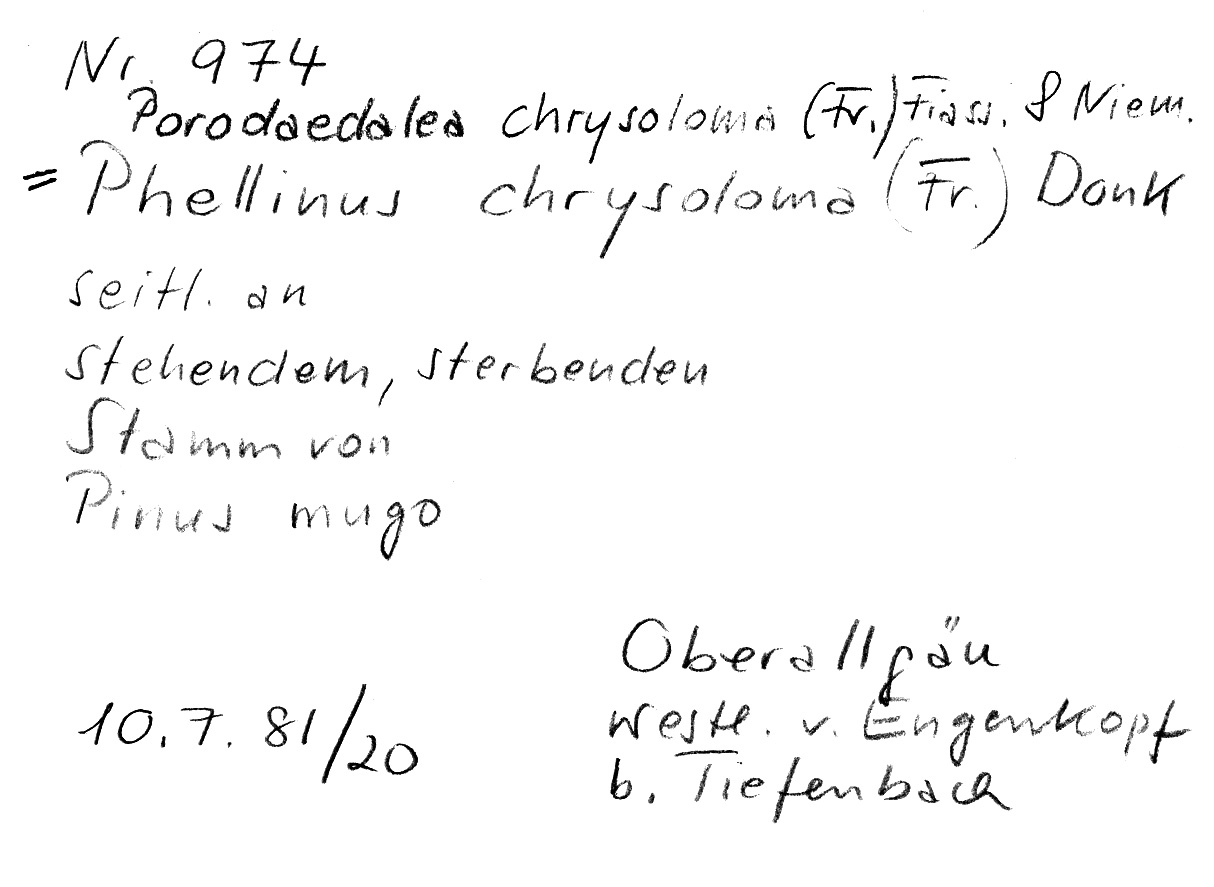 Nr. 974
Porodaedalea chrysoloma (Fr.) Fiass. & Niem.
= Phellinus chrysoloma (Fr.) Donk
seitl. an
stehendem, sterbenden
Stamm von
Pinus mugo
Oberallgäu
10.7.81/20
westl. v. Engenkopf
b. Tiefenbach